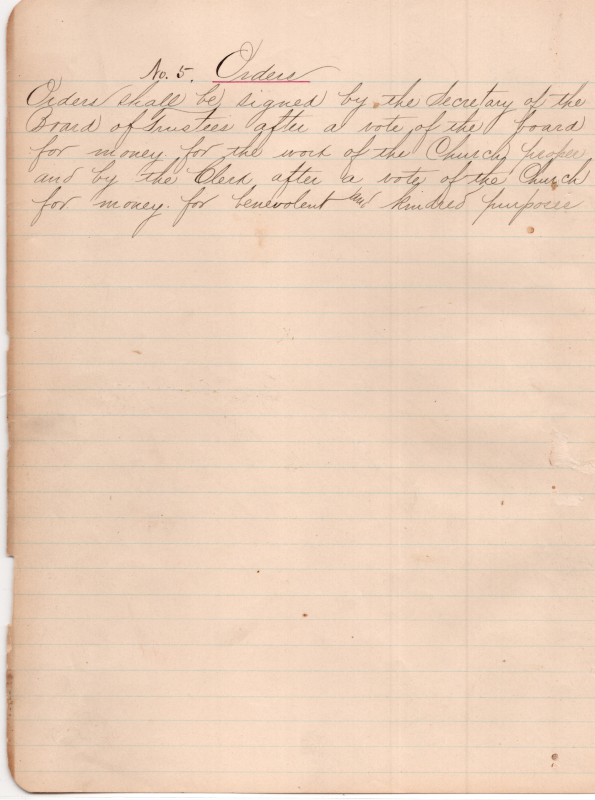 No. 5. Orders
Orders shall be signed by the Secretary of the
Board of Trustees after a vote of the board
for money for the work of the Church, proper
and by the Clerk after a vote of the Church
for money for benevolent and kindred purposes